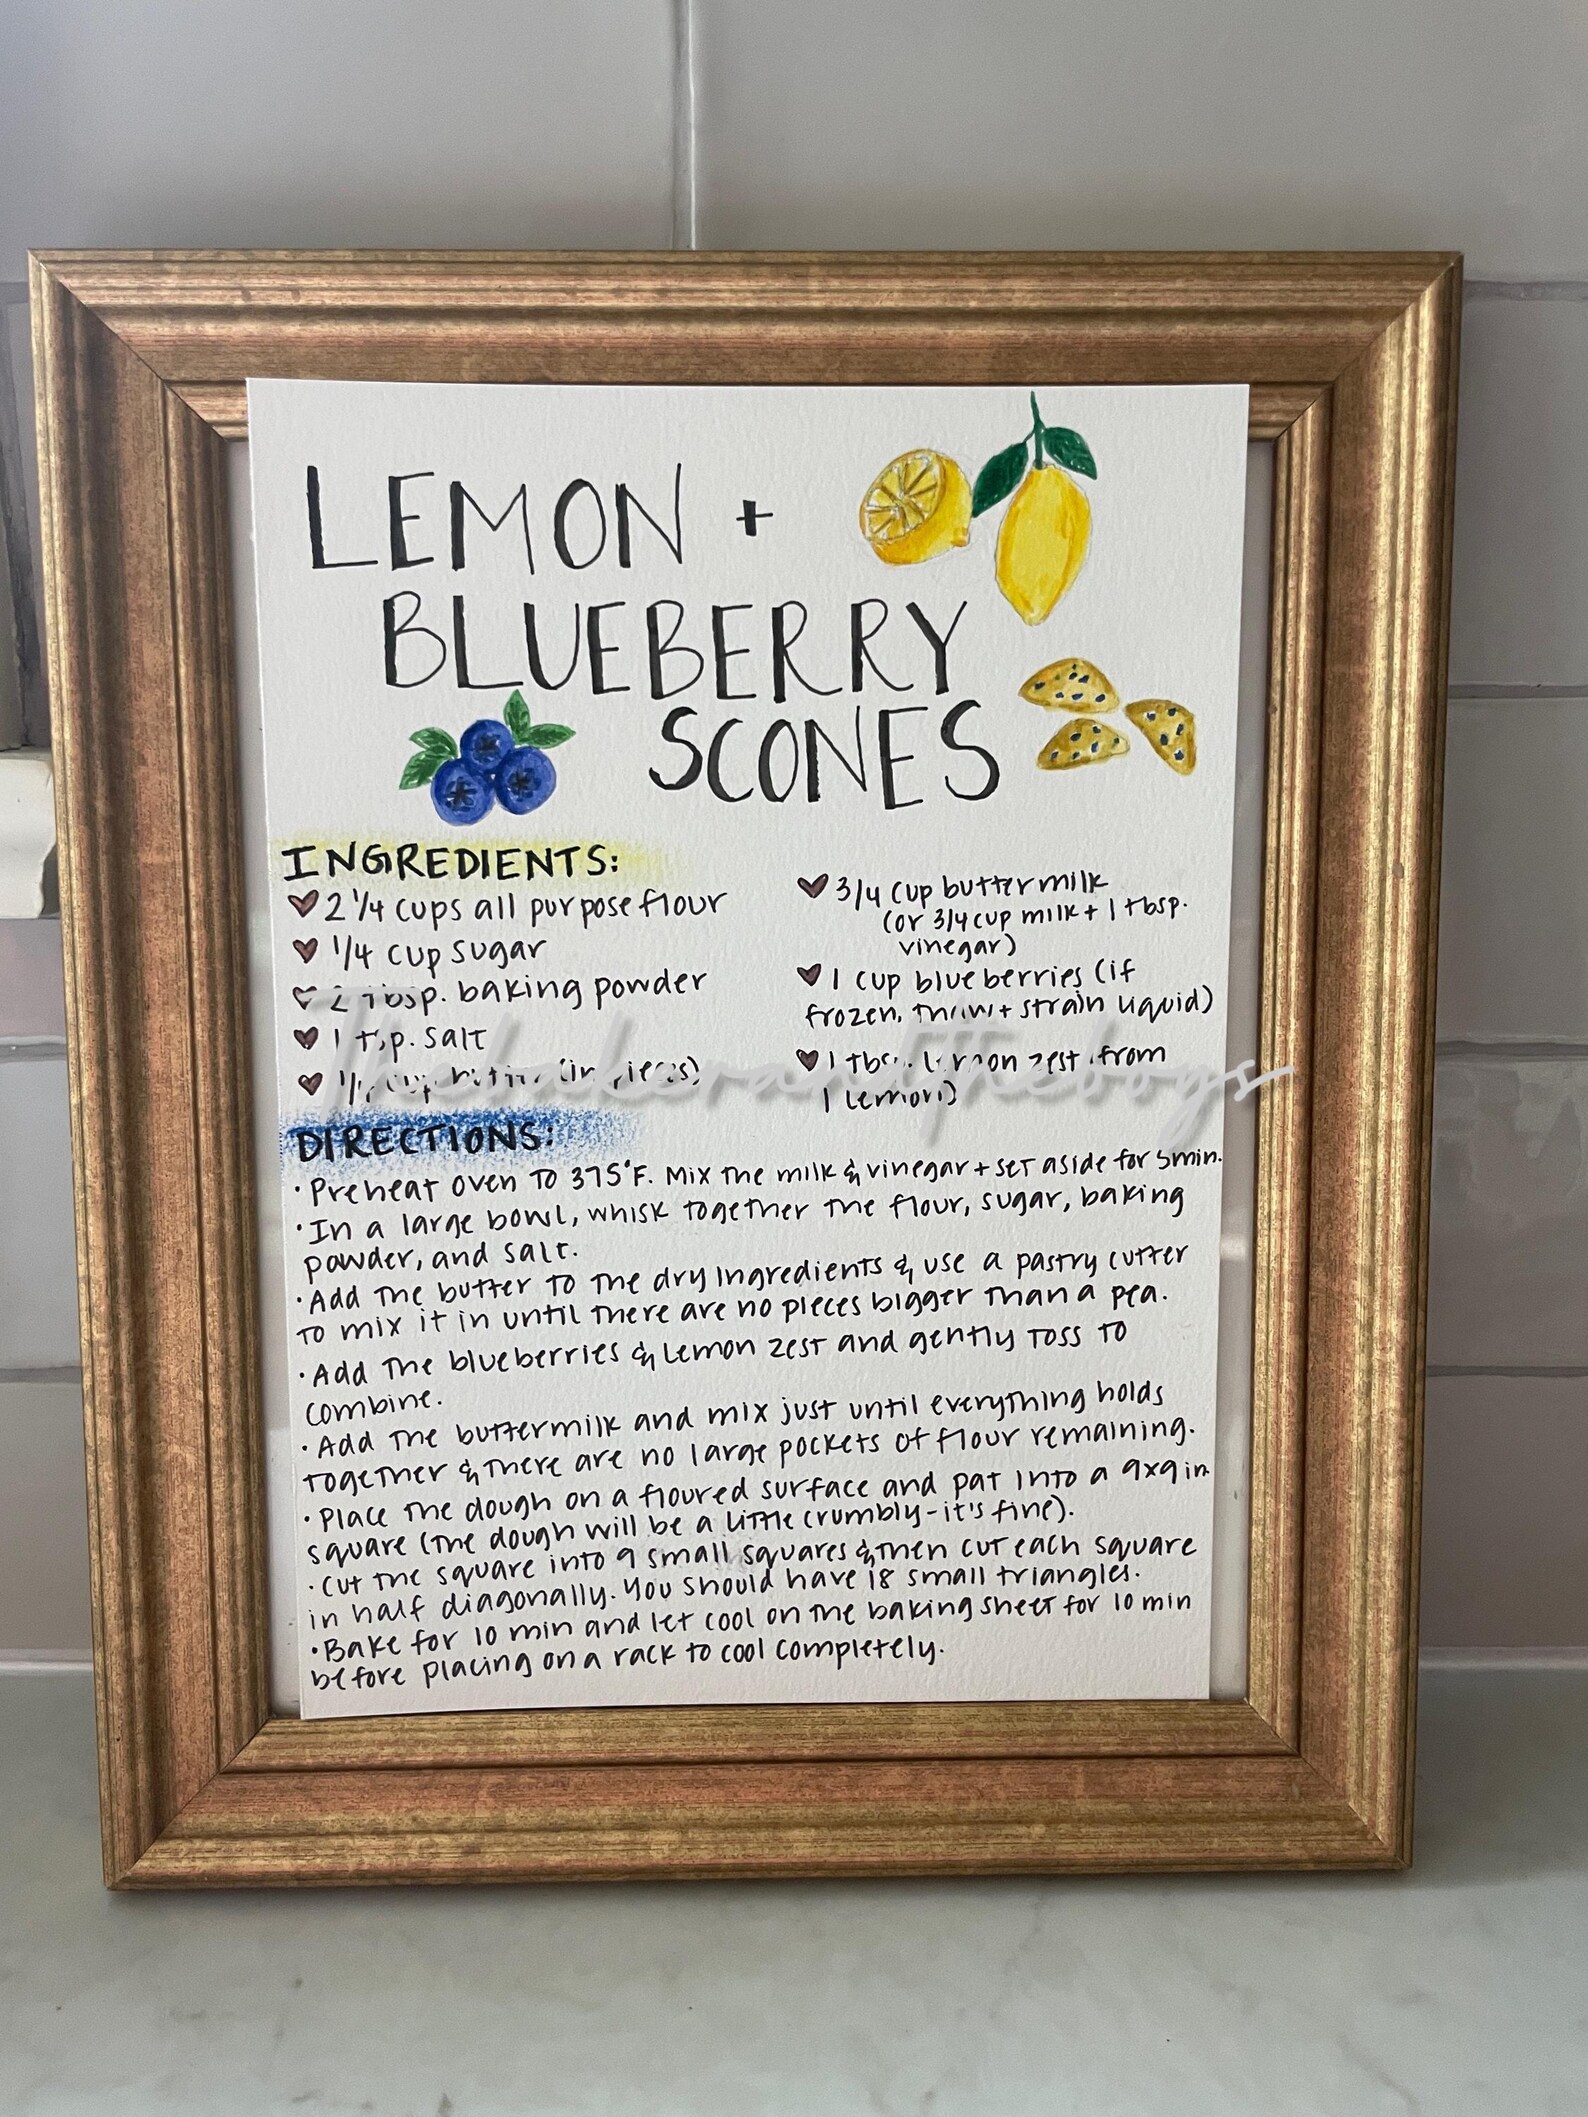 LEMON +
BLUEBERRY
SCONES
INGREDIENTS:
2 1/4 cups all purpose flour
1/4 cup sugar
2 tbsp. baking powder
1 tsp. salt
cup butter (in pieces)
3/4 cup buttermilk
(or 3/4 cup milk + 1 tbsp.
vinegar)
1 cup blueberries (if
frozen, thaw + strain liquid)
1 tbsp. lemon zest (from
1 lemon)
Thebakerandtheboys
DIRECTIONS:
• Preheat oven to 375°F. Mix the milk & vinegar + set aside for 5min.
• In a large bowl, whisk together the flour, sugar, baking
powder, and salt.
• Add the butter to the dry ingredients & use a pastry cutter
to mix it in until there are no pieces bigger than a pea.
• Add the blueberries & lemon zest and gently toss to
combine.
• Add the buttermilk and mix just until everything holds
together & there are no large pockets of flour remaining.
• Place the dough on a floured surface and pat into a 9x9 in
square (the dough will be a little crumbly - it's fine).
• Cut the square into 9 small squares & then cut each square
in half diagonally. You should have 18 small triangles.
• Bake for 10 min and let cool on the baking sheet for 10 min
before placing on a rack to cool completely.